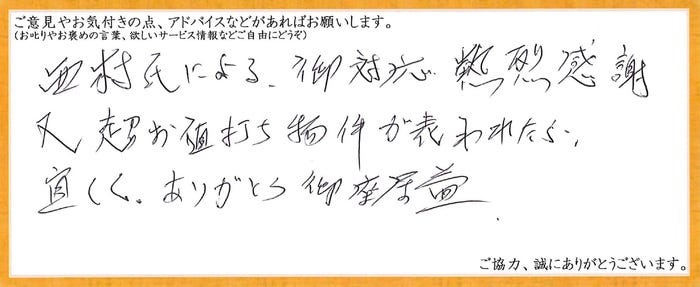 ご意見やお気付きの点、アドバイスなどがあればお願いします。
(お叱りやお褒めの言葉、欲しいサービス情報などご自由にどうぞ)
西村氏による、御対応熱烈感謝
又超お値打ち物件が表われたら、
宜しく、ありがとう御座居益
ご協力、誠にありがとうございます。